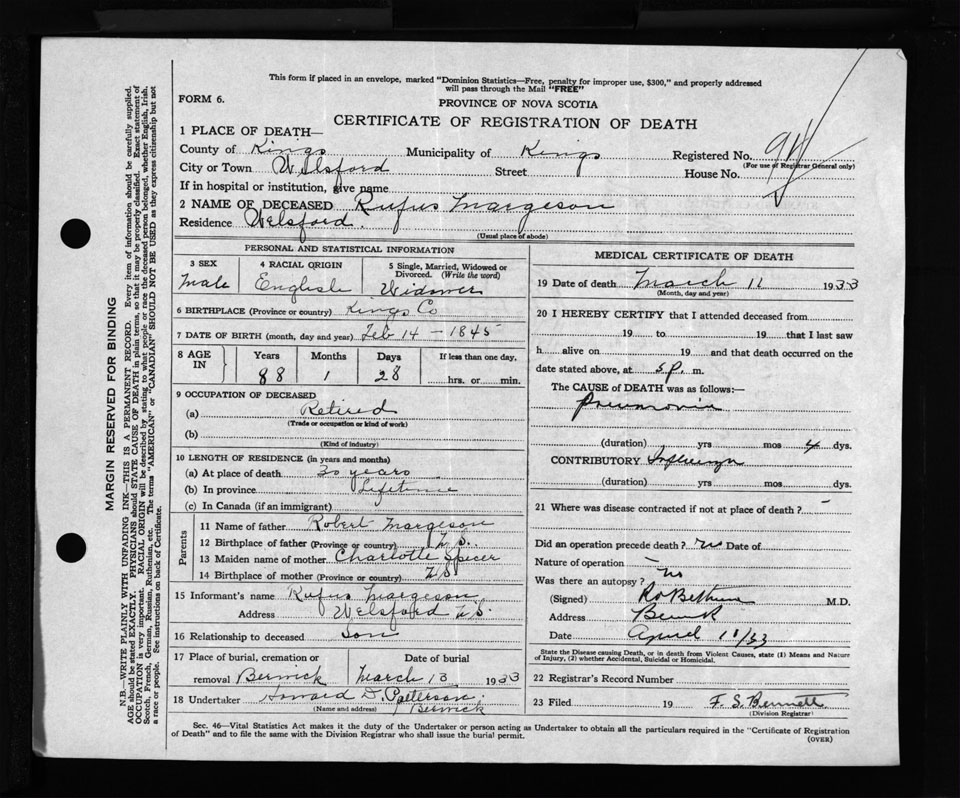 This form if placed in an envelope, marked "Dominion Statistics—Free, penalty for improper use, $300," and properly addressed
will pass through the Mail "FREE"
FORM 6.
PROVINCE OF NOVA SCOTIA
CERTIFICATE OF REGISTRATION OF DEATH
1 PLACE OF DEATH—
County of Kings Municipality of Kings Registered No. 94
(For use of Registrar General only)
City or Town Welsford Street House No.
If in hospital or institution, give name
2 NAME OF DECEASED Rufus Margeson
Residence Welsford.
(Usual place of abode)
PERSONAL AND STATISTICAL INFORMATION
3 SEX 4 RACIAL ORIGIN 5 Single, Married, Widowed or
Divorced. (Write the word)
Male English Widower
6 BIRTHPLACE (Province or country) Kings Co
7 DATE OF BIRTH (month, day and year) Feb 14 - 1845
8 AGE IN Years Months Days If less than one day,
88 1 28 hrs. or min.
9 OCCUPATION OF DECEASED
(a) Retired
(Trade or occupation or kind of work)
(b)
(Kind of industry)
10 LENGTH OF RESIDENCE (in years and months)
(a) At place of death 30 years
(b) In province Lifetime
(c) In Canada (if an immigrant)
Parents
11 Name of father Robert Margeson
12 Birthplace of father (Province or country) N.S.
13 Maiden name of mother Charlotte Spicer
14 Birthplace of mother (Province or country) N.S
15 Informant's name Rufus Margeson
Address Welsford N.S.
16 Relationship to deceased Son
17 Place of burial, cremation or Date of burial
removal Berwick March 13 1933
18 Undertaker Howard D. Patterson.
(Name and address) Berwick
MEDICAL CERTIFICATE OF DEATH
19 Date of death March 11 1933
(Month, day and year)
20 I HEREBY CERTIFY that I attended deceased from
19 to 19 that I last saw
h alive on 19 and that death occurred on the
date stated above, at 5 P. m.
The CAUSE of DEATH was as follows:—
Pneumonia
(duration) yrs mos 4 dys.
CONTRIBUTORY Influenza
(duration) yrs mos dys.
21 Where was disease contracted if not at place of death? -
Did an operation precede death? no Date of
Nature of operation -
Was there an autopsy? no
(Signed) M.D.
Address Berwick
Date April 11/33
State the Disease causing Death, or in death from Violent Causes, state (1) Means and Nature
of Injury, (2) whether Accidental, Suicidal or Homicidal.
22 Registrar's Record Number
23 Filed 19 F. S. Bennett
(Division Registrar)
Sec. 46—Vital Statistics Act makes it the duty of the Undertaker or person acting as Undertaker to obtain all the particulars required in the "Certificate of Registration
of Death" and to file the same with the Division Registrar who shall issue the burial permit.
(OVER)
MARGIN RESERVED FOR BINDING
N.B.—WRITE PLAINLY WITH UNFADING INK—THIS IS A PERMANENT RECORD. Every item of information should be carefully supplied.
AGE should be stated EXACTLY. PHYSICIANS should STATE CAUSE OF DEATH in plain terms, so that it may be properly classified. Exact statement of
OCCUPATION is very important. RACIAL ORIGIN will be described by stating to what people or race the deceased person belonged, whether English, Irish,
Scotch, French, German, Russian, Ruthenian, etc. The terms "AMERICAN" or "CANADIAN" SHOULD NOT BE USED as they express citizenship but not
a race or people. See instructions on back of Certificate.